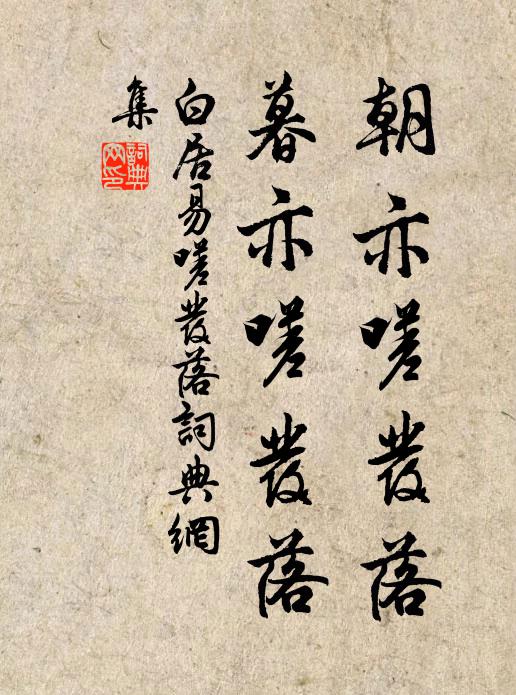 朝亦嗟發落
暮亦嗟發落
白居易嗟發落詞典網
集
詞典
網印